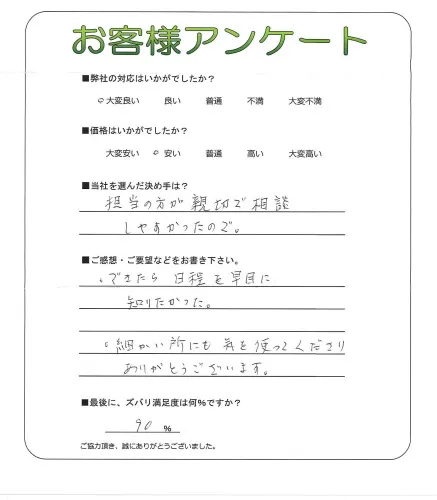 お客様アンケート
■弊社の対応はいかがでしたか?
○大変良い 良い 普通 不満 大変不満
■価格はいかがでしたか?
大変安い ○安い 普通 高い 大変高い
■当社を選んだ決め手は?
担当の方が親切で相談
しやすかったので。
■ご感想・ご要望などをお書き下さい。
・できたら日程を早目に
知りたかった。
・細かい所にも気を使ってくださり
ありがとうございます。
■最後に、ズバリ満足度は何%ですか?
90 %
ご協力頂き、誠にありがとうございました。